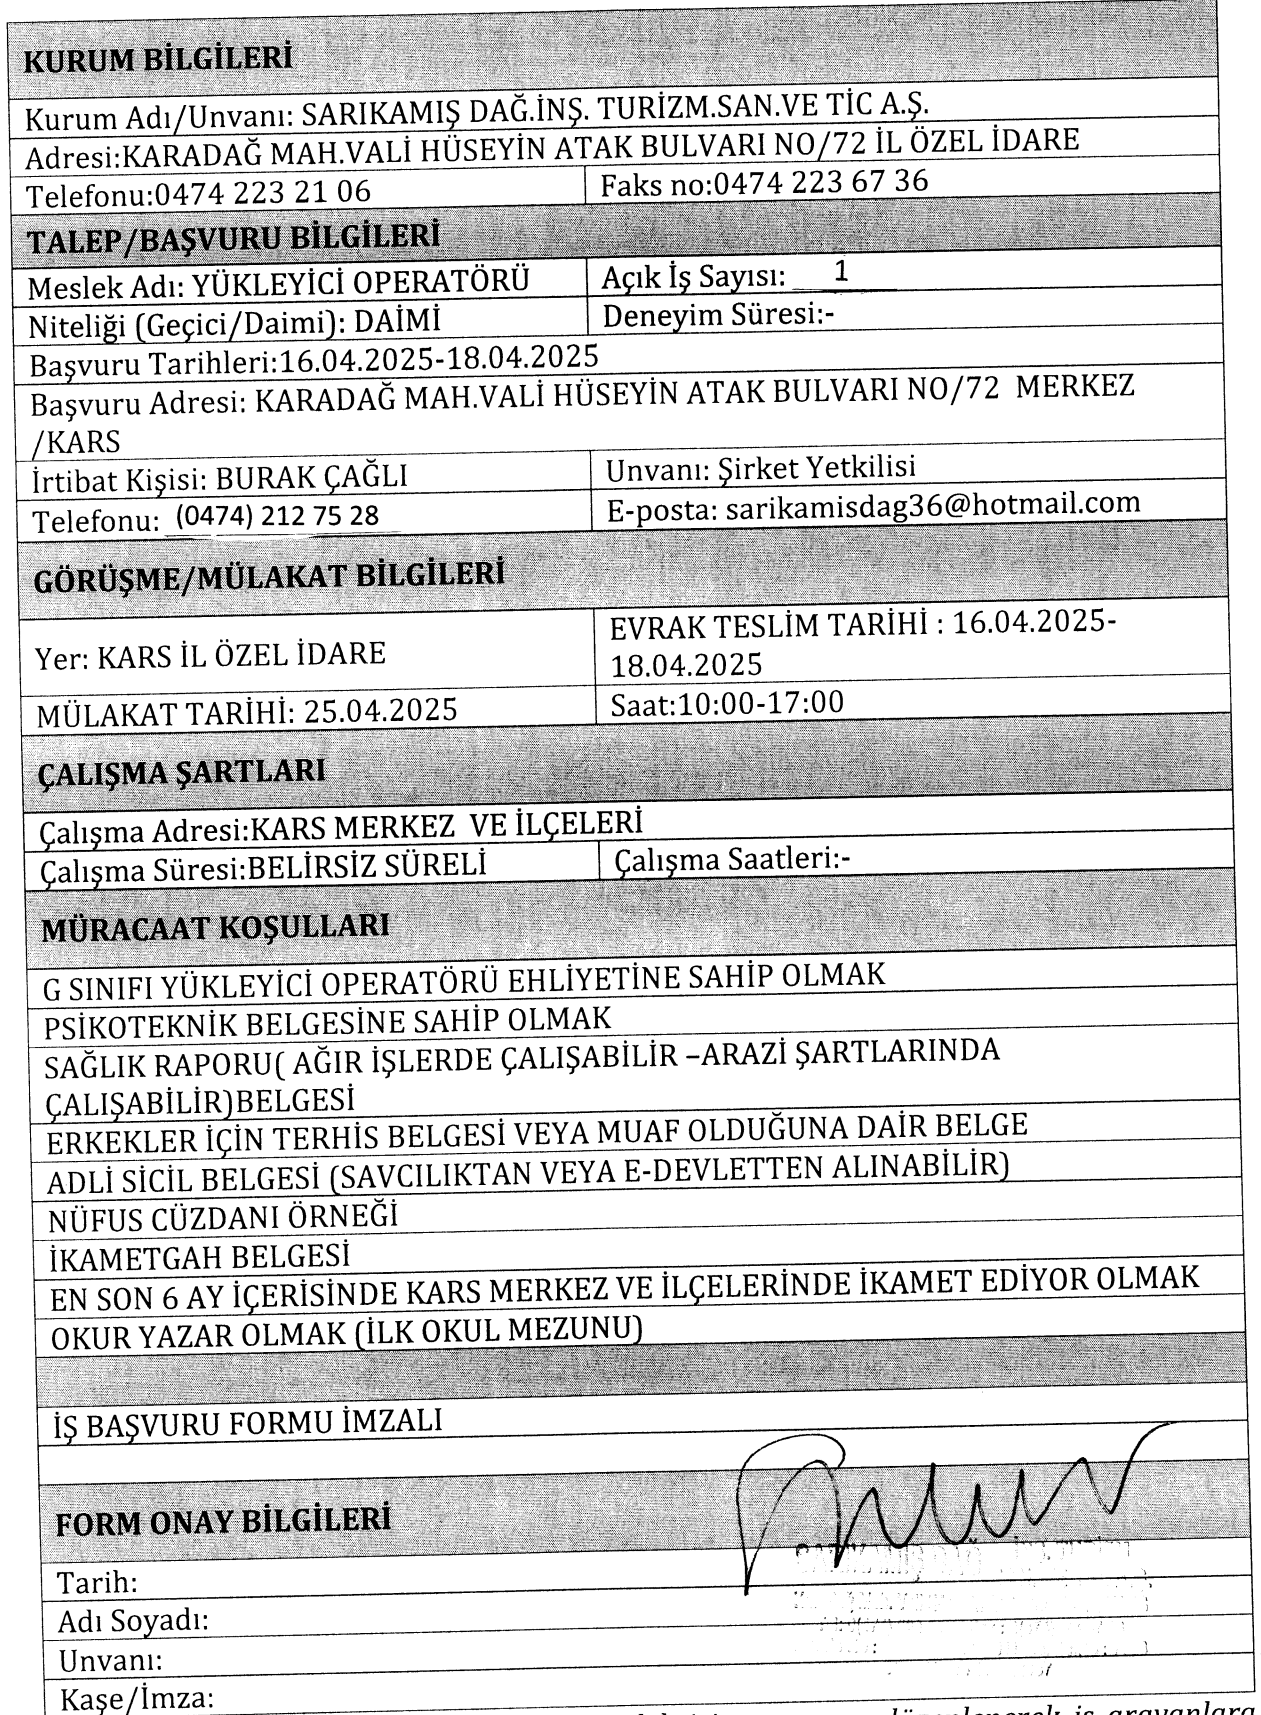 KURUM BİLGİLERİ
Kurum Adı/Unvanı: SARIKAMIŞ DAĞ.İNŞ. TURİZM.SAN.VE TİC A.Ş.
Adresi:KARADAĞ MAH.VALİ HÜSEYİN ATAK BULVARI NO/72 İL ÖZEL İDARE
Telefonu:0474 223 21 06 Faks no:0474 223 67 36
TALEP/BAŞVURU BİLGİLERİ
Meslek Adı: YÜKLEYİCİ OPERATÖRÜ Açık İş Sayısı: 1
Niteliği (Geçici/Daimi): DAİMİ Deneyim Süresi:-
Başvuru Tarihleri:16.04.2025-18.04.2025
Başvuru Adresi: KARADAĞ MAH.VALİ HÜSEYİN ATAK BULVARI NO/72 MERKEZ
/KARS
İrtibat Kişisi: BURAK ÇAĞLI Unvanı: Şirket Yetkilisi
Telefonu: (0474) 212 75 28 E-posta: sarikamisdag36@hotmail.com
GÖRÜŞME/MÜLAKAT BİLGİLERİ
Yer: KARS İL ÖZEL İDARE
EVRAK TESLİM TARİHİ : 16.04.2025-
18.04.2025
MÜLAKAT TARİHİ: 25.04.2025 Saat:10:00-17:00
ÇALIŞMA ŞARTLARI
Çalışma Adresi:KARS MERKEZ VE İLÇELERİ
Çalışma Süresi:BELİRSİZ SÜRELİ Çalışma Saatleri:-
MÜRACAAT KOŞULLARI
G SINIFI YÜKLEYİCİ OPERATÖRÜ EHLİYETİNE SAHİP OLMAK
PSİKOTEKNİK BELGESİNE SAHİP OLMAK
SAĞLIK RAPORU( AĞIR İŞLERDE ÇALIŞABİLİR –ARAZİ ŞARTLARINDA
ÇALIŞABİLİR)BELGESİ
ERKEKLER İÇİN TERHİS BELGESİ VEYA MUAF OLDUĞUNA DAİR BELGE
ADLİ SİCİL BELGESİ (SAVCILIKTAN VEYA E-DEVLETTEN ALINABİLİR)
NÜFUS CÜZDANI ÖRNEĞİ
İKAMETGAH BELGESİ
EN SON 6 AY İÇERİSİNDE KARS MERKEZ VE İLÇELERİNDE İKAMET EDİYOR OLMAK
OKUR YAZAR OLMAK (İLK OKUL MEZUNU)
İŞ BAŞVURU FORMU İMZALI
FORM ONAY BİLGİLERİ
Tarih:
Adı Soyadı:
Unvanı:
Kaşe/İmza:
düzenlenerek iş arayanlara